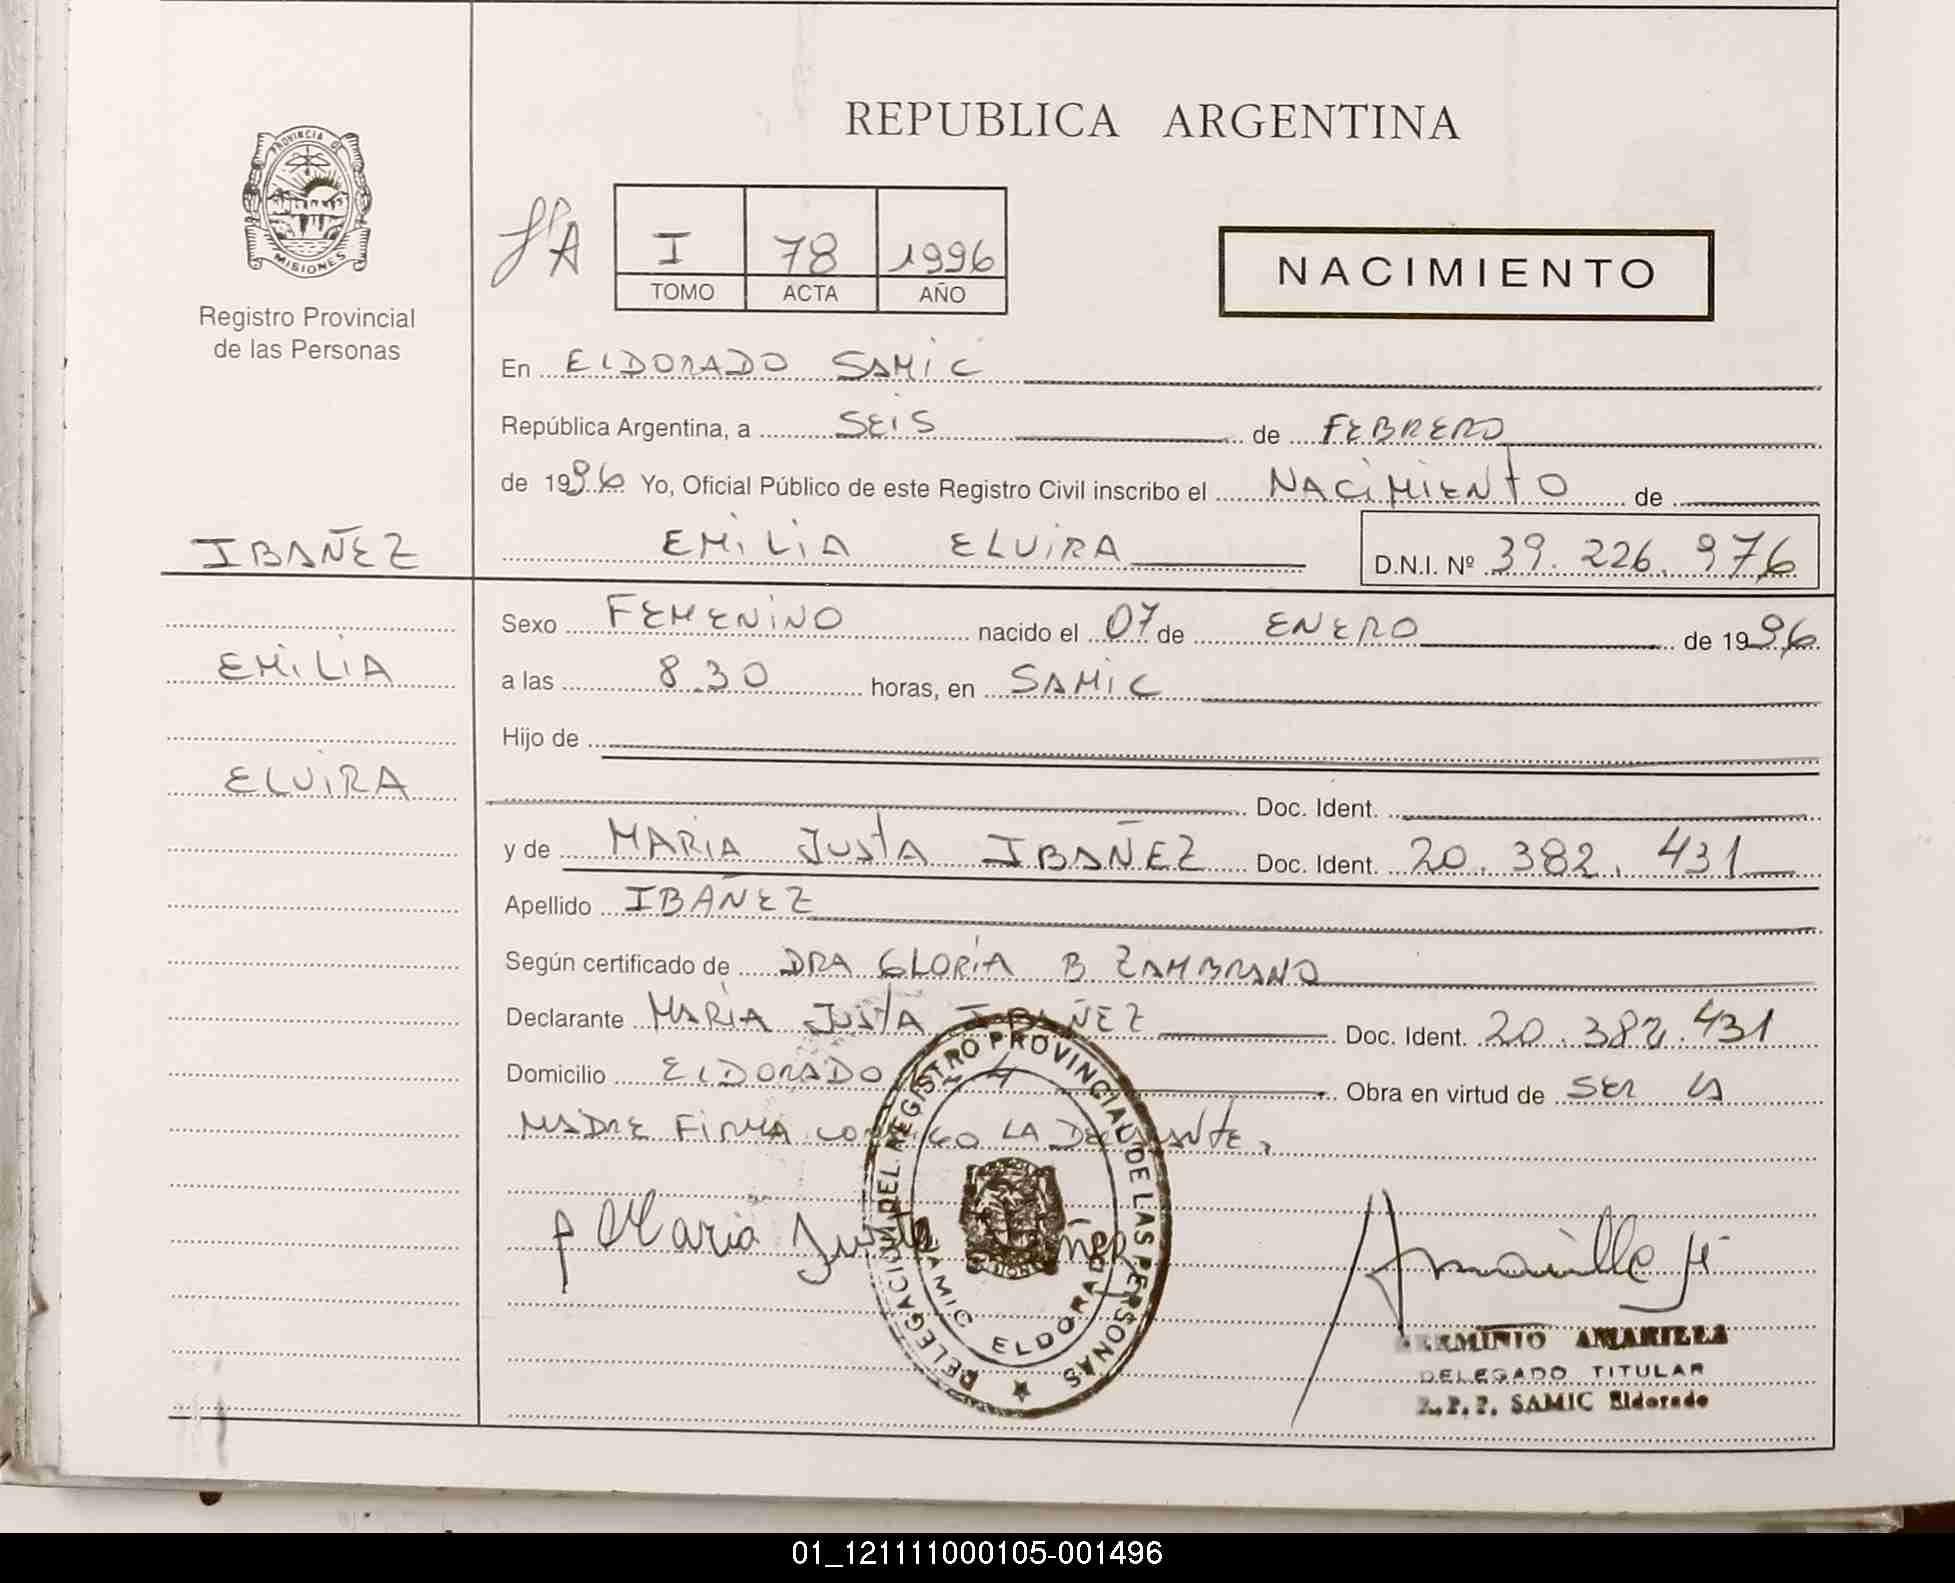 REPUBLICA ARGENTINA
PROVINCIA DE
MISIONES
Registro Provincial
de las Personas
I 78 1996
TOMO ACTA AÑO
NACIMIENTO
En ELDORADO SAMIC
República Argentina, a SEIS de FEBRERO
de 1996 Yo, Oficial Público de este Registro Civil inscribo el NACIMIENTO de
IBAÑEZ
EMILIA ELVIRA D.N.I. Nº 39.226.976
Sexo FEMENINO nacido el 07 de ENERO de 1996
EMILIA
a las 8.30 horas, en SAMIC
Hijo de
ELVIRA
Doc. Ident.
y de MARIA JUSTA IBAÑEZ Doc. Ident. 20.382.431
Apellido IBAÑEZ
Según certificado de DRA GLORIA B ZAMBRANO
Declarante MARIA JUSTA IBAÑEZ Doc. Ident. 20.382.431
Domicilio ELDORADO Obra en virtud de SER LA
MADRE FIRMA CONMIGO LA DECLARANTE.
Maria Justa
DELEGACION DEL REGISTRO PROVINCIAL DE LAS PERSONAS
SAMIC ELDORADO
HERMINIO AMARILLA
DELEGADO TITULAR
R.P.P. SAMIC Eldorado
01_121111000105-001496